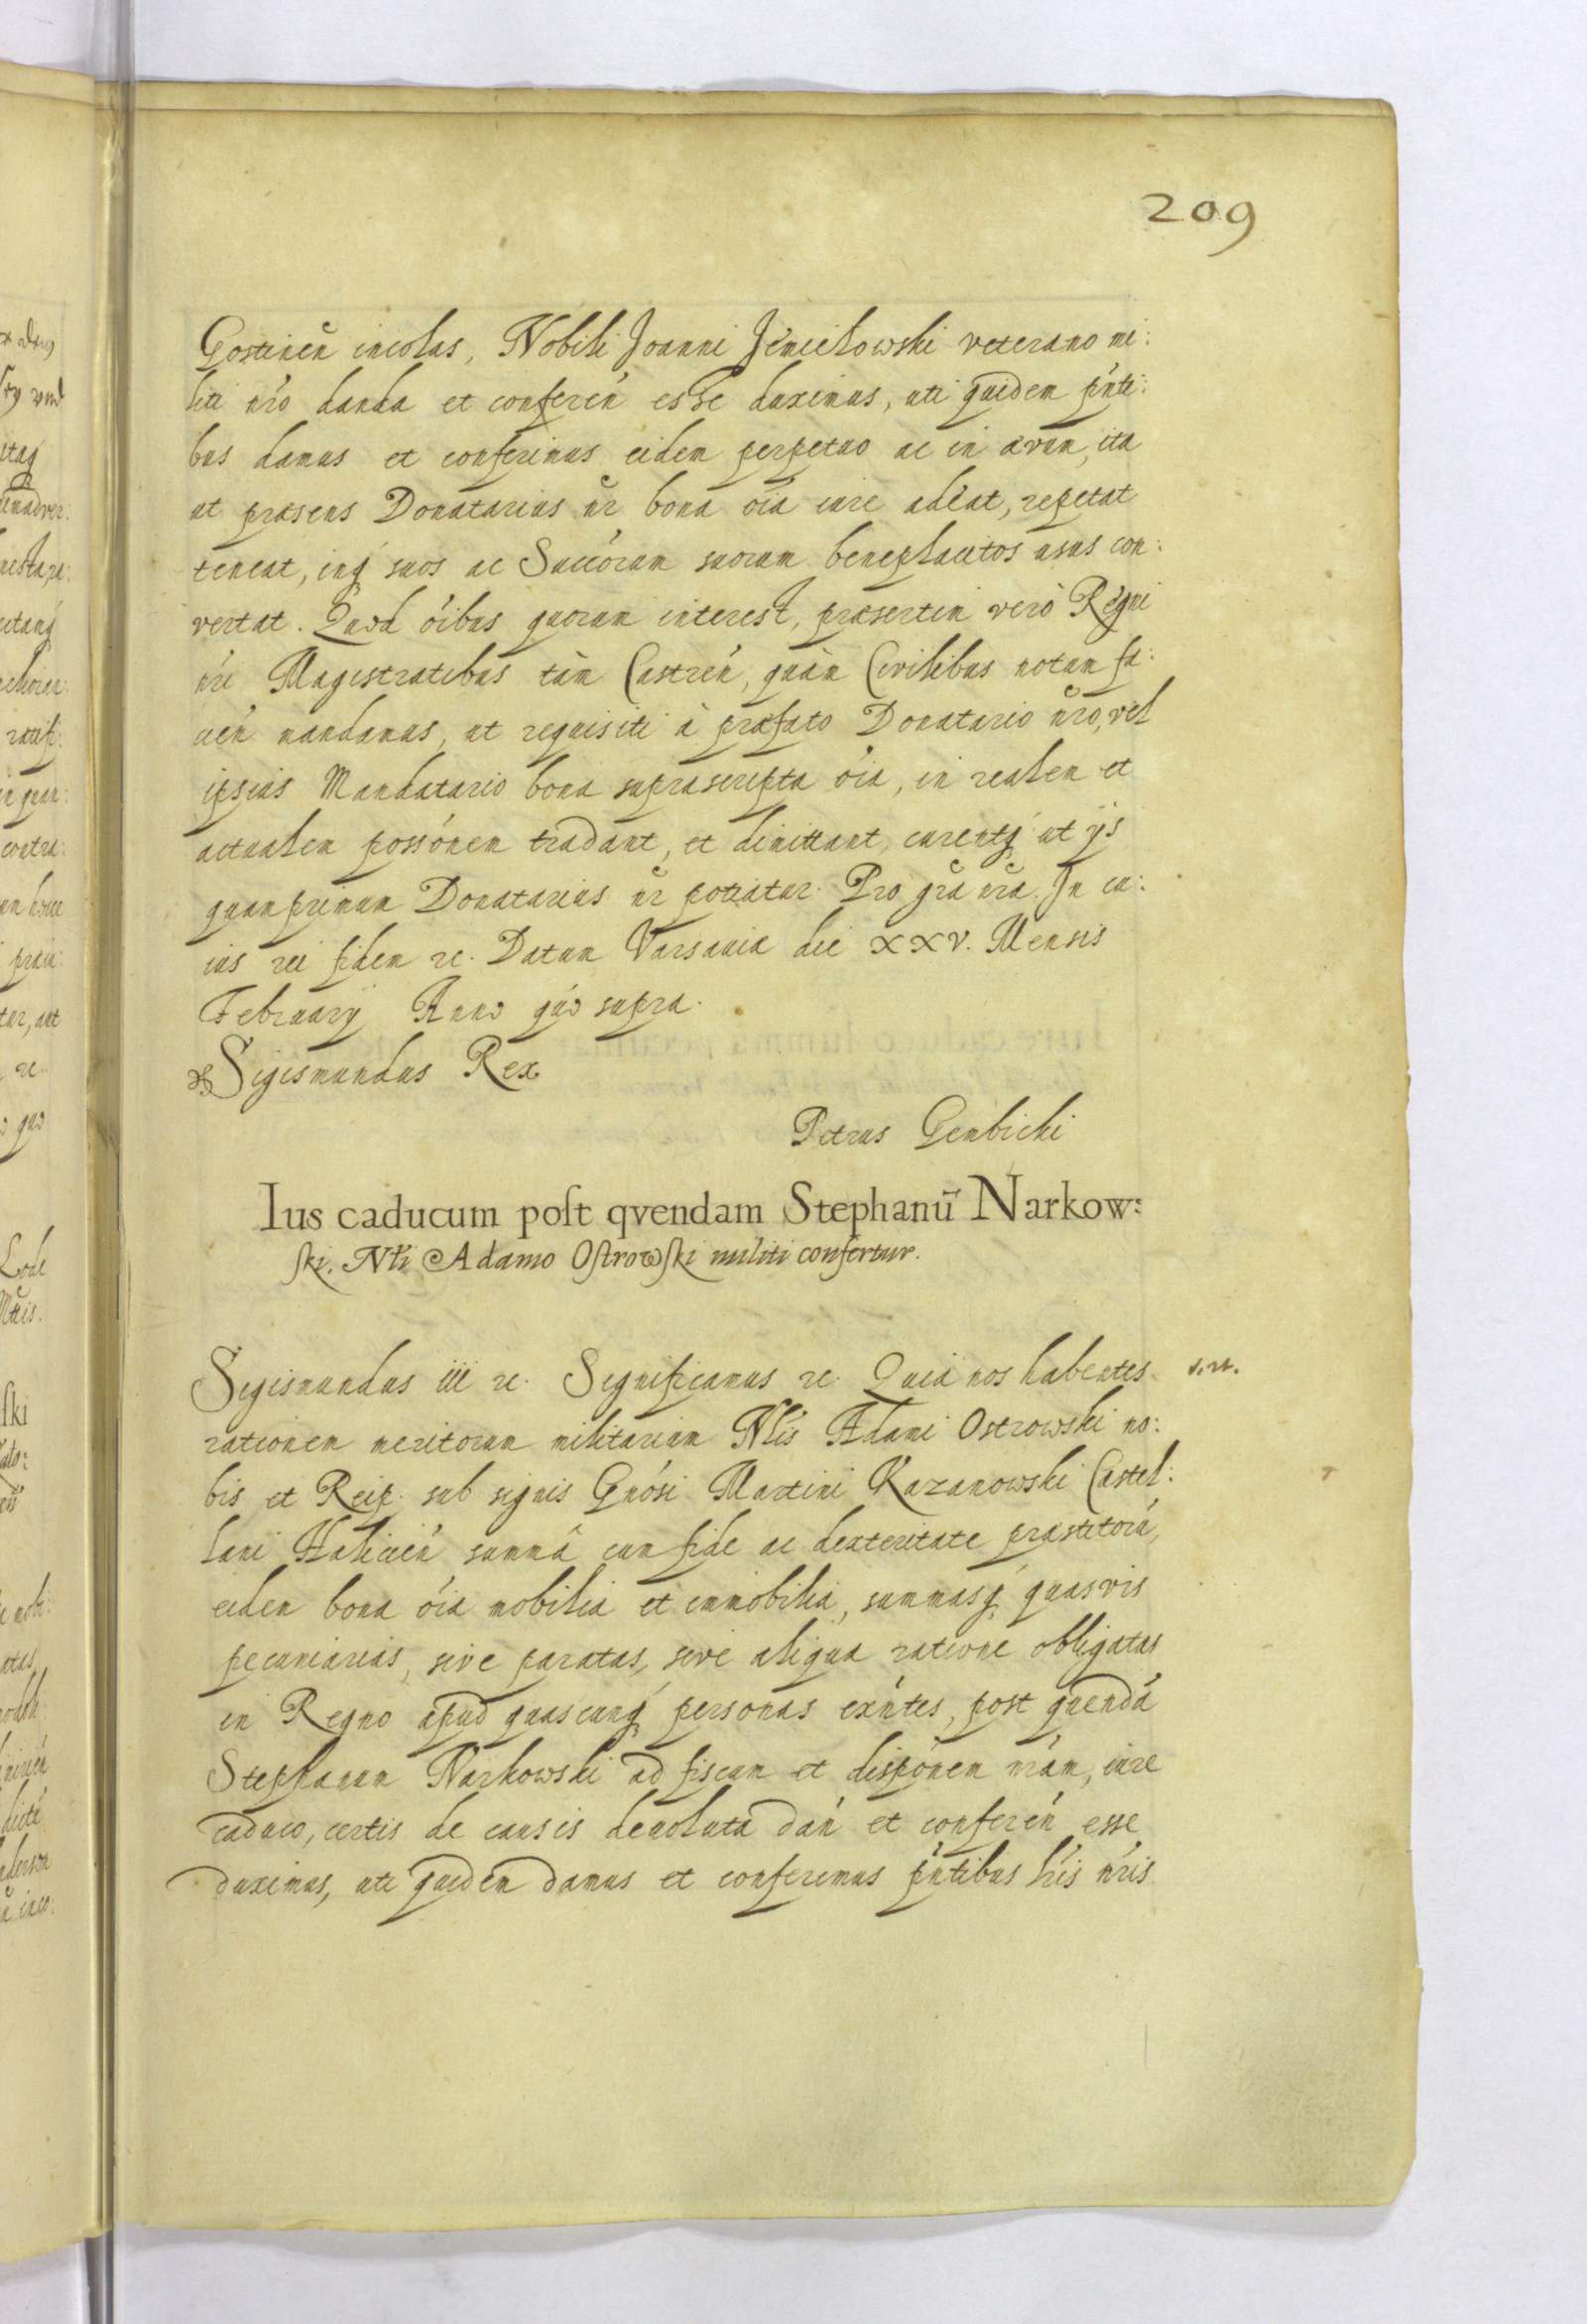 209
Gostinen̄ incolas, Nobili Joanni Jemielowski veterano mi:
liti nr̄o danda et conferen̄ esse duximus, uti quidem p̄nti:
bus damus et conferimus eidem perpetuo ac in ævum, ita
ut præsens Donatarius nr̄ bona oīa iure adeat, repetat
teneat, inq́ suos ac Succōrum suorum beneplacitos usus con:
vertat. Quod oībus quorum interest, præsertim verò Regni
nr̄i Magistratibus tàm Castren̄, quàm Civilibus notum fa:
cien̄ mandamus, ut requisiti à præfato Donatario nr̄o, vel
ipsius Mandatario bona suprascripta oīa, in realem et
actualem possōnem tradant, et dimittant, curentq́ ut ijs
quamprimum Donatarius nr̄ potiatur. Pro gr̄a nr̄a. In cu:
ius rei fidem ꝛc. Datum Varsauiæ die XXV. Mensis
February Anno quō supra.
Sigismundus Rex
Petrus Gembicki
Ius caducum poſt qvendam Stephanū Narkow:
ſki. Nłi Adamo Oſtrowſki militi confertur.
Sigismundus iii ꝛc. Significamus ꝛc. Quia nos habentes
rationem meritorum militarium Nlis Adami Ostrowski no:
bis et Reip. sub signis Gnōsi Martini Kazanowski Castel:
lani Halicien̄ summâ cum fide ac dexteritate præstitorū,
eidem bona oīa mobilia et immobilia, summasq́ quasvis
pecuniarias, sive paratas, sive aliqua ratione obligatas
in Regno apud quascunq́ personas exn̄tes, post quendā
Stephanum Narkowski ad fiscum et dispōnem nr̄am, iure
caduco, certis de causis deuoluta dan̄ et conferen̄ esse
duximus, uti quidem damus et conferimus p̄ntibus lr̄is nr̄is